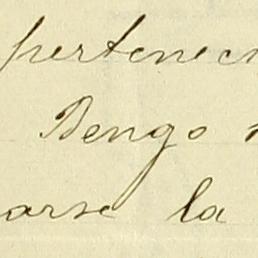 pertenec
Bengo
arse la